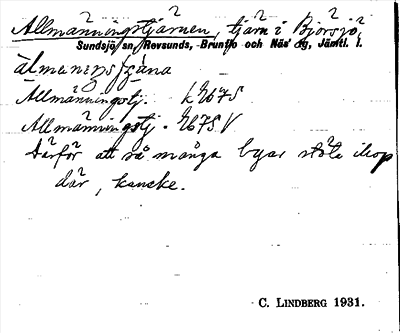 Allmänningstjärnen, tjärn i Björsjö,
Sundsjö sn, Revsunds, Brunflo och Näs' dg, Jämtl. l.
Allmänningstj. k
Allmänningstj. V
Därför att så många byar stöta ihop
där, kanske.
C. LINDBERG 1931.